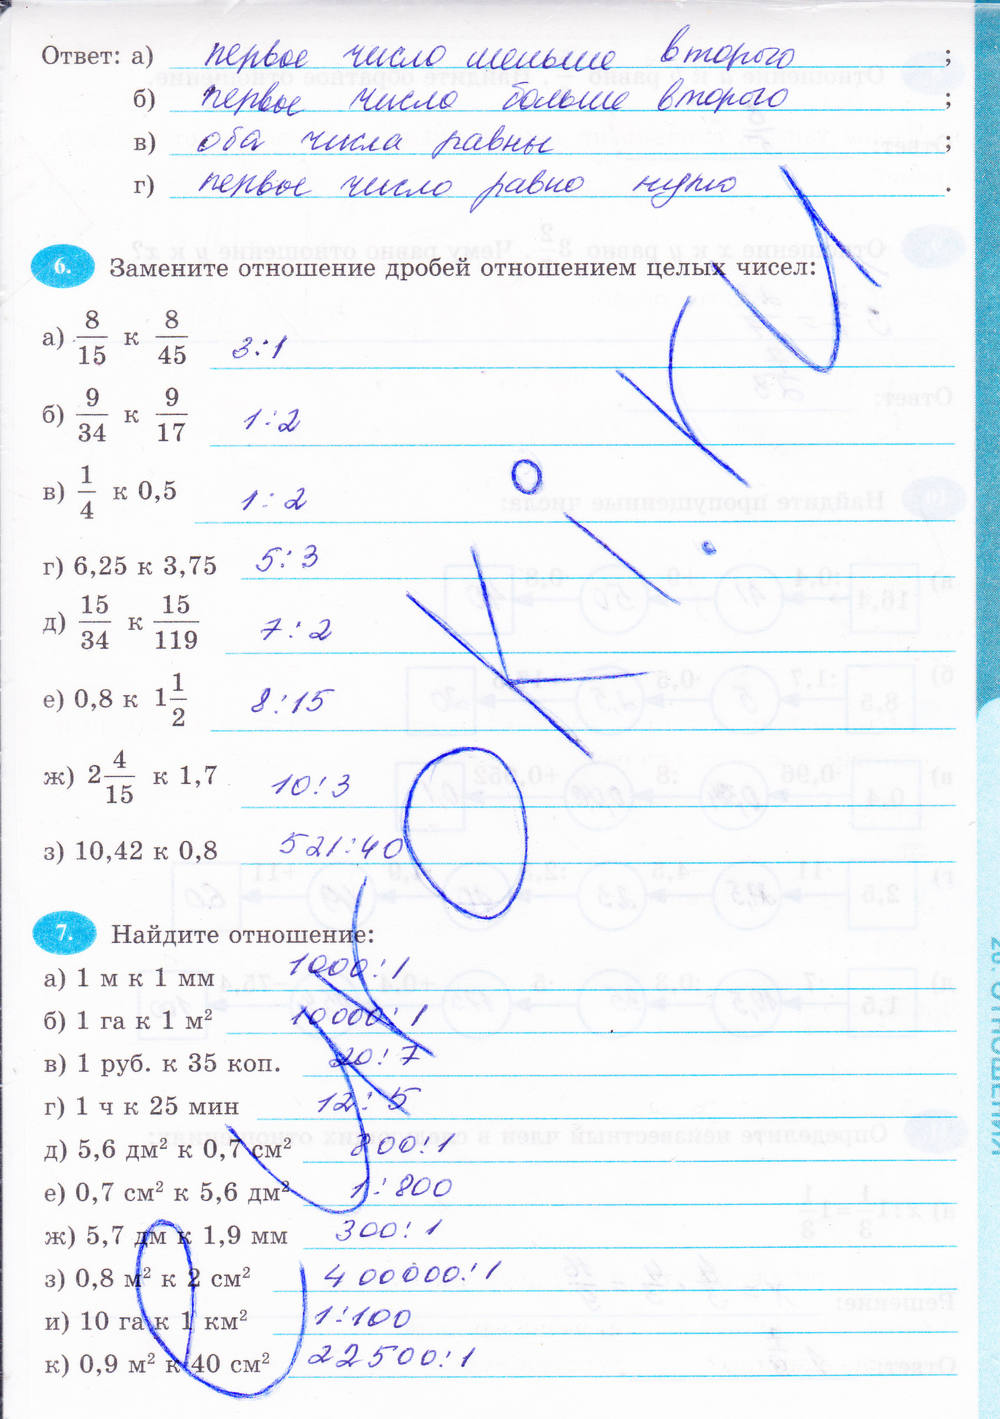 Ответ: а) первое число меньше второго ;
б) первое число больше второго ;
в) оба числа равны ;
г) первое число равно нулю .
6. Замените отношение дробей отношением целых чисел:
а) 8/15 к 8/45 3:1
б) 9/34 к 9/17 1:2
в) 1/4 к 0,5 1:2
г) 6,25 к 3,75 5:3
д) 15/34 к 15/119 7:2
е) 0,8 к 1 1/2 8:15
ж) 2 4/15 к 1,7 10:3
з) 10,42 к 0,8 521:40
7. Найдите отношение:
а) 1 м к 1 мм 1000:1
б) 1 га к 1 м² 10000:1
в) 1 руб. к 35 коп. 20:7
г) 1 ч к 25 мин 12:5
д) 5,6 дм² к 0,7 см² 800:1
е) 0,7 см² к 5,6 дм² 1:800
ж) 5,7 дм к 1,9 мм 300:1
з) 0,8 м² к 2 см² 400000:1
и) 10 га к 1 км² 1:100
к) 0,9 м² к 40 см² 22500:1